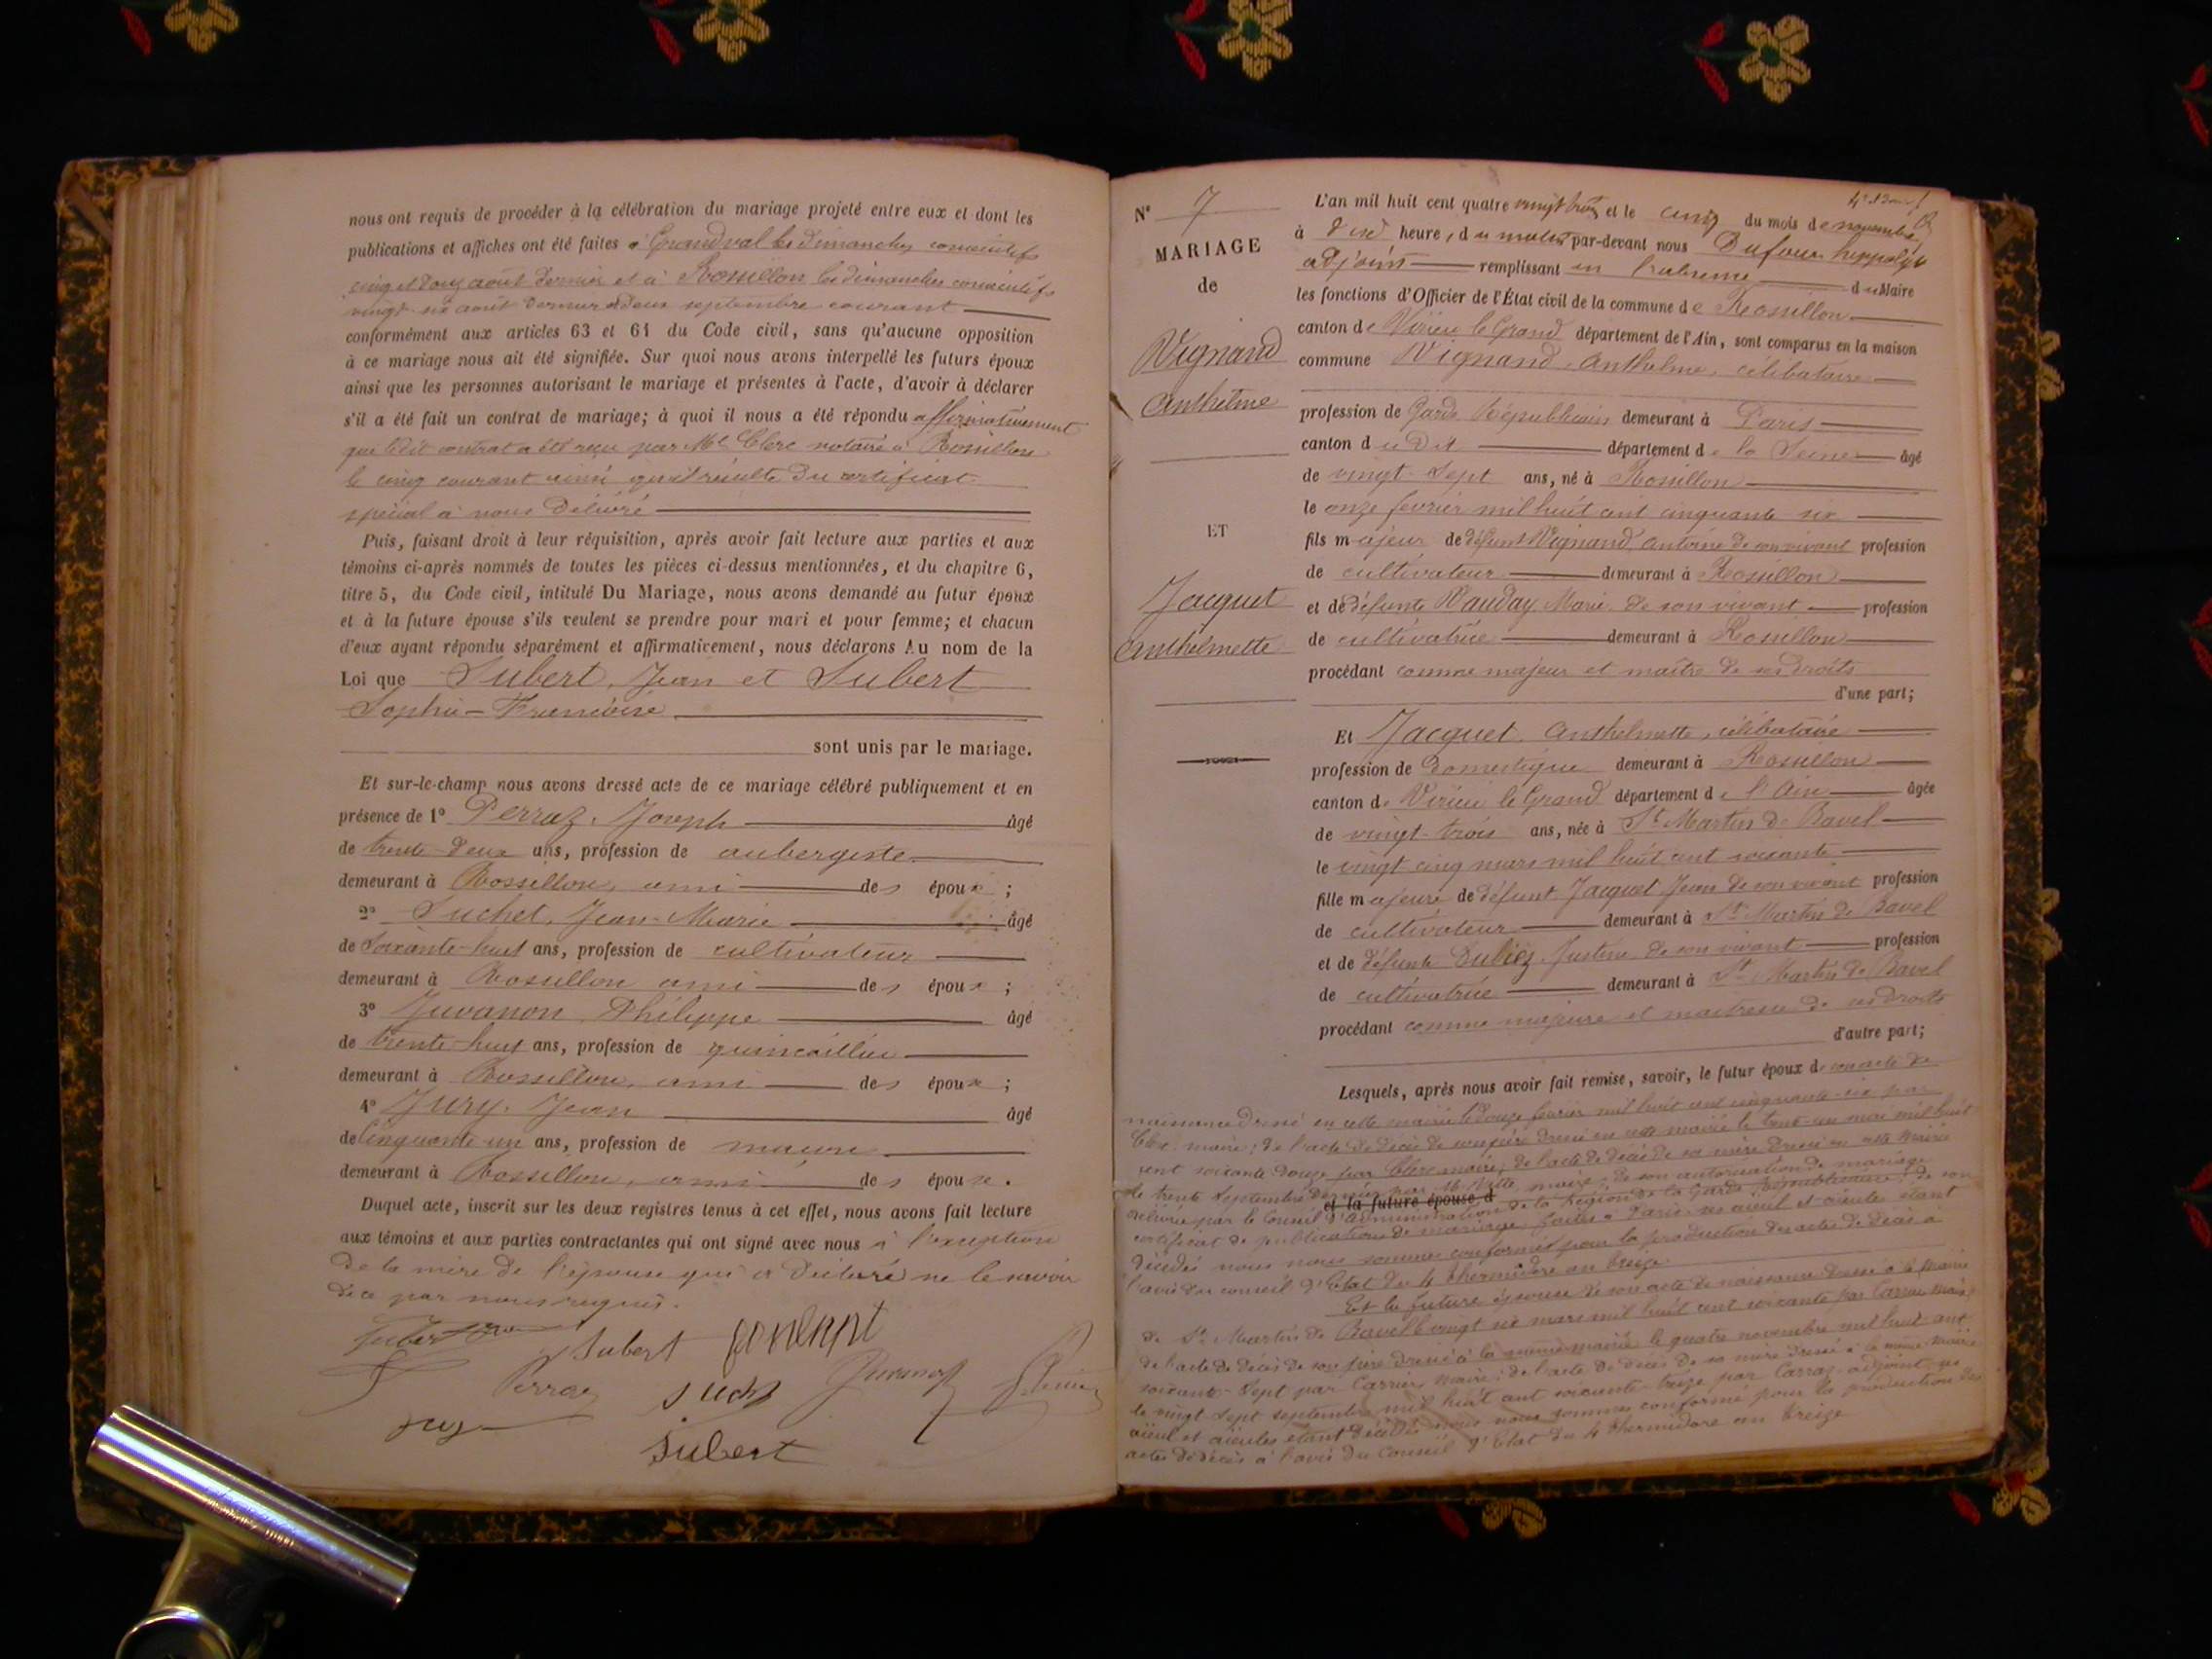 nous ont requis de procéder à la célébration du mariage projeté entre eux et dont les
publications et affiches ont été faites à Grandval les dimanches consécutifs
cinq et douze août dernier et à Rossillon les dimanches consécutifs
vingt-six août dernier et deux septembre courant
conformément aux articles 63 et 64 du Code civil, sans qu'aucune opposition
à ce mariage nous ait été signifiée. Sur quoi nous avons interpellé les futurs époux
ainsi que les personnes autorisant le mariage et présentes à l'acte, d'avoir à déclarer
s'il a été fait un contrat de mariage; à quoi il nous a été répondu affirmativement
que ledit contrat a été reçu par Me Clerc notaire à Rossillon
le cinq courant ainsi qu'il résulte du certificat
spécial à nous délivré
Puis, faisant droit à leur réquisition, après avoir fait lecture aux parties et aux
témoins ci-après nommés de toutes les pièces ci-dessus mentionnées, et du chapitre 6,
titre 5, du Code civil, intitulé Du Mariage, nous avons demandé au futur époux
et à la future épouse s'ils veulent se prendre pour mari et pour femme; et chacun
d'eux ayant répondu séparément et affirmativement, nous déclarons Au nom de la
Loi que Subert, Jean et Subert
Sophie-Françoise
sont unis par le mariage.
Et sur-le-champ nous avons dressé acte de ce mariage célébré publiquement et en
présence de 1° Perraz, Joseph âgé
de trente-deux ans, profession de aubergiste
demeurant à Rossillon, ami des époux ;
2° Suchet, Jean-Marie âgé
de Soixante-huit ans, profession de cultivateur
demeurant à Rossillon ami des époux ;
3° Juvanon, Philippe âgé
de trente-huit ans, profession de quincaillier
demeurant à Rossillon, ami des époux ;
4° Jury, Jean âgé
de Cinquante-un ans, profession de maçon
demeurant à Rossillon, ami des époux.
Duquel acte, inscrit sur les deux registres tenus à cet effet, nous avons fait lecture
aux témoins et aux parties contractantes qui ont signé avec nous à l'exception
de la mère de l'épouse qui a déclaré ne le savoir
de ce par nous requis.
Subert Subert
Perraz Such Juvanon
Jury
Subert
N° 7
MARIAGE
de
Vignand
Anthelme
ET
Jacquet
Anthelmette
L'an mil huit cent quatre vingt trois et le cinq du mois de novembre
à dix heures, du matin par-devant nous Dufour hippolyte
adjoint remplissant en l'absence du Maire
les fonctions d'Officier de l'État civil de la commune de Rossillon
canton de Virieu le Grand département de l'Ain, sont comparus en la maison
commune Vignand, Anthelme, célibataire
profession de Garde Républicain demeurant à Paris
canton du dit département de la Seine âgé
de vingt-sept ans, né à Rossillon
le onze février mil huit cent cinquante six
fils majeur de défunt Vignand, Antoine de son vivant profession
de cultivateur demeurant à Rossillon
et de défunte Vauday Marie de son vivant profession
de cultivatrice demeurant à Rossillon
procédant comme majeur et maître de ses droits
d'une part;
Et Jacquet Anthelmette, célibataire
profession de domestique demeurant à Rossillon
canton de Virieu le Grand département de l'Ain âgée
de vingt-trois ans, née à St Martin de Bavel
le vingt cinq mars mil huit cent soixante
fille majeure de défunt Jacquet Jean de son vivant profession
de cultivateur demeurant à St Martin de Bavel
et de défunte Dubiez Justine de son vivant profession
de cultivatrice demeurant à St Martin de Bavel
procédant comme majeure et maitresse de ses droits
d'autre part;
Lesquels, après nous avoir fait remise, savoir, le futur époux de son acte de
naissance dressé en cette mairie le douze février mil huit cent cinquante-six par
Clerc maire; de l'acte de décès de son père dressé en cette mairie le trente-un mai mil huit
cent soixante douze par Clerc maire; de l'acte de décès de sa mère dressé en cette mairie
le trente Septembre dernier par maire; de son autorisation de mariage
et la future épouse d
délivrée par le Conseil d'administration de la Légion de la Garde Républicaine; de son
certificat de publications de mariage faites à Paris ses aieul et aieules étant
décédés nous nous sommes conformés pour la production des actes de décès à
l'avis du conseil d'Etat du 4 thermidore an treize.
Et la future épouse de son acte de naissance dressé à la Mairie
de St Martin de Bavel le vingt six mars mil huit cent soixante par Carraz Maire
de l'acte de décès de son père dressé à la même mairie le quatre novembre mil huit cent
soixante-sept par Carrier maire; de l'acte de décès de sa mère dressé à la même mairie
le vingt sept septembre mil huit cent soixante-treize par Carraz adjoint ses
aieul et aieules étant décédés nous nous sommes conformé pour la production des
actes de décès à l'avis du Conseil d'Etat du 4 thermidore an treize